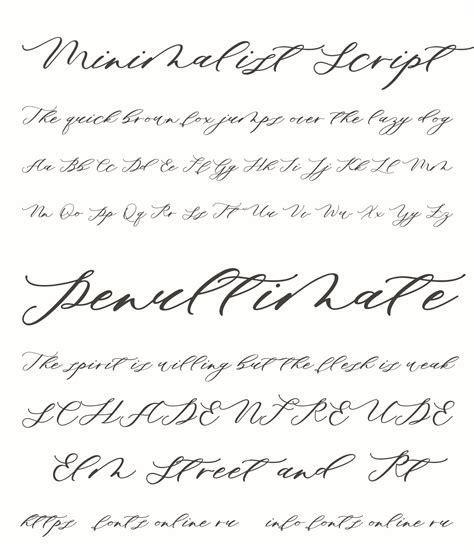 Minimalist Script
The quick brown fox jumps over the lazy dog
Aa Bb Cc Dd Ee Ff Gg Hh Ii Jj Kk Ll Mm
Nn Oo Pp Qq Rr Ss Tt Uu Vv Ww Xx Yy Zz
Penultimate
The spirit is willing but the flesh is weak
SCHADENFREUDE
Elm Street and Rt
https fonts online ru info fonts online ru